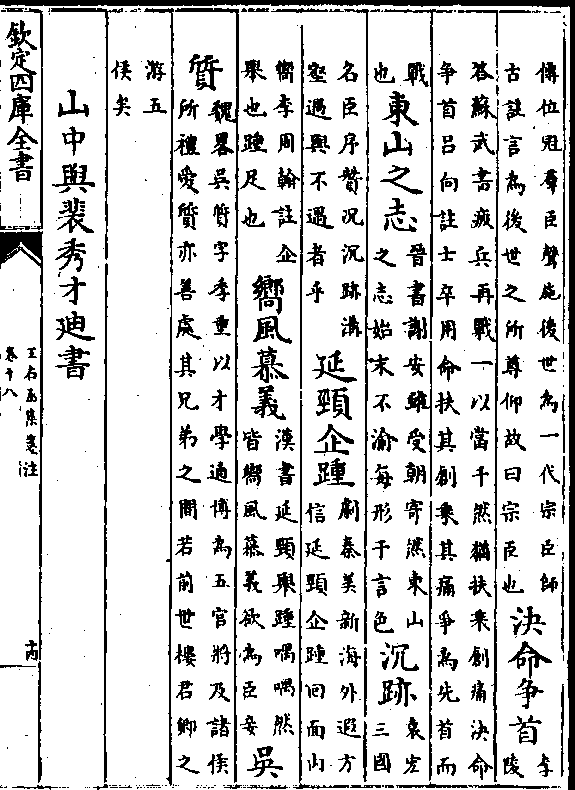 傳位冠羣臣聲施後世為一代宗臣師
古註言為後世之所尊仰故曰宗臣也
決命争首
李
陵
答蘇武書疲兵再戰一以當千然猶扶乗創痛決命
争首吕向註士卒用命扶其創乗其痛争為先首而
戰
也
東山之志
晉書謝安雖受朝寄然東山
之志始末不渝每形于言色
沉跡
袁宏
三國
名臣序贊况沉跡溝
壑遇與不遇者乎
延頸企踵
劇秦美新海外遐方
信延頸企踵回面内
嚮李周翰註企
舉也踵足也
嚮風慕義
漢書延頸舉踵喁喁然
皆嚮風慕義欲為臣妾
吳
質
魏畧吳質字季重以才學通博為五官將及諸侯
所禮愛質亦善處其兄弟之間若前世樓君卿之
游五
侯矣
山中與裴秀才廸書
欽定四庫全書
王右丞集箋注
卷十八
十六